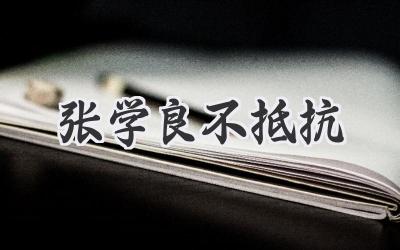 张学良不抵抗